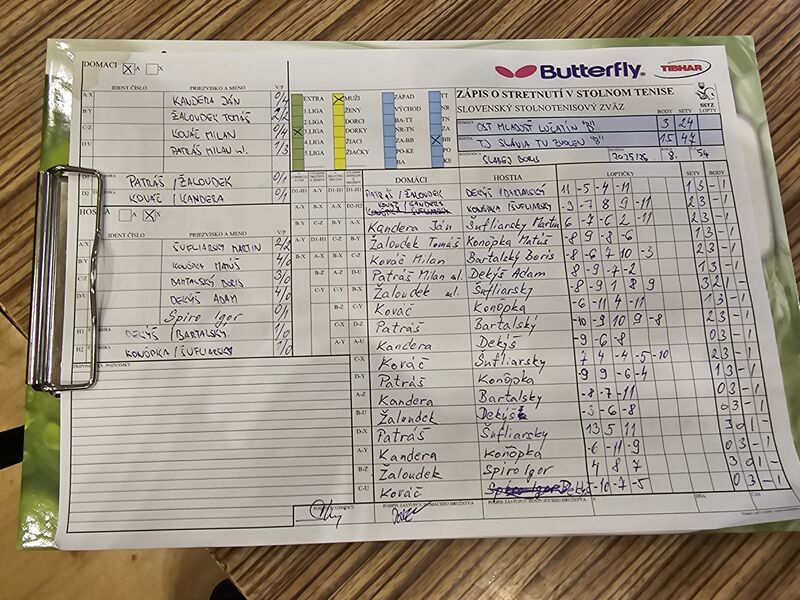 DOMÁCI X A X
IDENT.ČÍSLO PRIEZVISKO A MENO V/P
A-X KANDERA JÁN 0/4
B-Y ŽALOUDEK TOMÁŠ 2/2
C-Z KOVÁČ MILAN 0/4
D/U PATRÁŠ MILAN ml. 1/3
PATRÁŠ / ŽALOUDEK 0/1
D2 KOVÁČ / KANDERA 0/1
HOSTIA A X
IDENT.ČÍSLO PRIEZVISKO A MENO V/P
A-X ŠUFLIARSKY MARTIN 2/2
B-Y KONÔPKA MATÚŠ 4/0
BARTALSKÝ BORIS 3/0
D/U DEKÝŠ ADAM 4/0
Spiro Igor 0/1
H1 DEKÝŠ / BARTALSKÝ 1/0
H2 KONÔPKA / ŠUFLIARSKY 1/0
PRIPOMIENKY - POZNÁMKY
Butterfly TIBHAR
EXTRA MUŽI ZÁPAD TT
1.LIGA ŽENY VÝCHOD
2.LIGA DORCI BA-TT TN
3.LIGA DORKY NR-TN ZA
4.LIGA ŽIACI ZA-BB BB
5.LIGA ŽIAČKY PO-KE PO
BA KE
ZÁPIS O STRETNUTÍ V STOLNOM TENISE
SLOVENSKÝ STOLNOTENISOVÝ ZVÄZ
SSTZ
BODY SETY LOPTY
OST MLADOSŤ LUČATÍN "B" 3 24
TJ SLÁVIA TU ZVOLEN "B" 15 47
SLABEJ BORIS 2025/26 8. 54
DOMÁCI HOSTIA LOPTIČKY SETY BODY
D1-H1 PATRÁŠ / ŽALOUDEK DEKÝŠ / BARTALSKÝ 11 -5 -4 -11 1 3 - 1
D2-H2 KOVÁČ / KANDERA KONÔPKA / ŠUFLIARSKY -3 -7 8 9 -11 2 3 - 1
A-X Kandera Ján Šufliarsky Martin 6 -7 -6 2 -11 2 3 - 1
B-Y Žaloudek Tomáš Konôpka Matúš -8 9 -8 -6 1 3 - 1
C-Z Kováč Milan Bartalský Boris -8 -6 7 10 -3 2 3 - 1
Patráš Milan ml. Dekýš Adam -8 -9 -7 -2
Žaloudek ml. Šufliarsky -8 -9 1 8 9 3 2 1 -
Kováč Konôpka -6 -11 4 -11 1 3 - 1
Patráš Bartalský -10 -9 10 9 -8 2 3 - 1
A-U Kandera Dekýš -9 -6 -8 0 3 - 1
C-X Kováč Šufliarsky 7 4 -4 -5 -10 2 3 - 1
D-Y Patráš Konôpka -9 9 -6 -4 1 3 - 1
A-Z Kandera Bartalsky -8 -7 -11 0 3 - 1
B-U Žaloudek Dekýš -3 -6 -8 0 3 - 1
D-X Patráš Šufliarsky 13 5 11 3 0 1 -
A-Y Kandera Konôpka -6 -11 -9 0 3 - 1
B-Z Žaloudek Spiro Igor 4 8 7 3 0 1 -
C-U Kováč Spiro Igor Dekýš -10 -7 -5 0 3 - 1
PODPIS ZÁSTUPCE DOMÁCEHO DRUŽSTVA PODPIS ZÁSTUPCE HOSŤUJÚCEHO DRUŽSTVA V DŇA ČAS